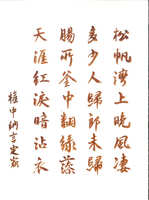 松帆湾上晩風凄
多少人歸郎未歸
腸所釜中翻緑藻
天涯紅淚暗沾衣
権中納言定家